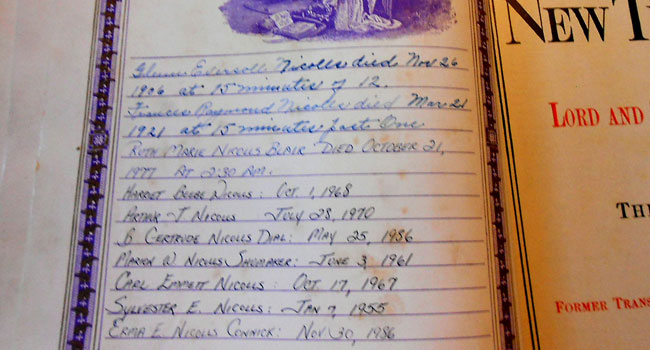 Glenns Eversoll Nicolls died Nov 26
1906 at 15 minutes of 12.
Frances Raymond Nicolls died Mar 21
1921 at 15 minutes past One
Ruth Marie Nicolls Blair Died October 21,
1977 at 2:30 AM.
Harriet Buehl Nicolls: Oct 1, 1968
Arthur J. Nicolls July 28, 1970
B Gertrude Nicolls Dial: May 25, 1956
Marion W Nicolls Shumaker: June 3, 1961
Carl Emmett Nicolls: Oct 17, 1967
Sylvester E. Nicolls: Jan 7, 1955
Erma E. Nicolls Connick: Nov 30, 1986
New T
Lord and
Th
Former Trans